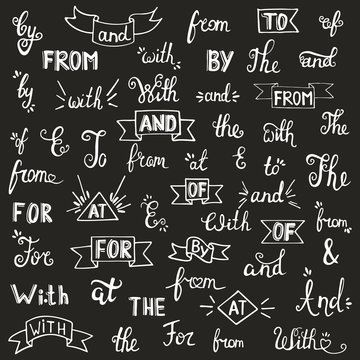 by and from TO of
FROM with BY The and
by with With and FROM
of & To AND the with The
from from at & to The
FOR AT & OF and
For FOR By With OF from
With at from and &
THE AT And
WITH the For from With